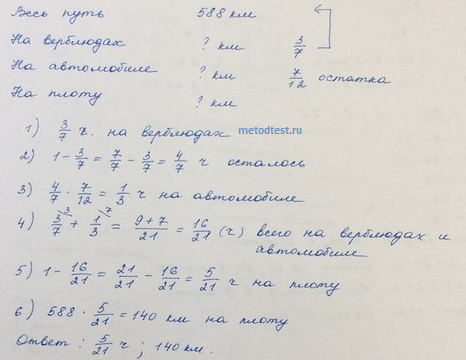 Весь путь 588 км
На верблюдах ? км 3/7
На автомобиле ? км 7/12 остатка
На плоту ? км
1) 3/7 ч. на верблюдах metodtest.ru
2) 1 - 3/7 = 7/7 - 3/7 = 4/7 ч осталось
3) 4/7 · 7/12 = 1/3 ч на автомобиле
4) 3/7 ³ + 1/3 ⁷ = 9+7/21 = 16/21 (ч) всего на верблюдах и
автомобиле
5) 1 - 16/21 = 21/21 - 16/21 = 5/21 ч на плоту
6) 588 · 5/21 = 140 км на плоту
Ответ: 5/21 ч; 140 км.